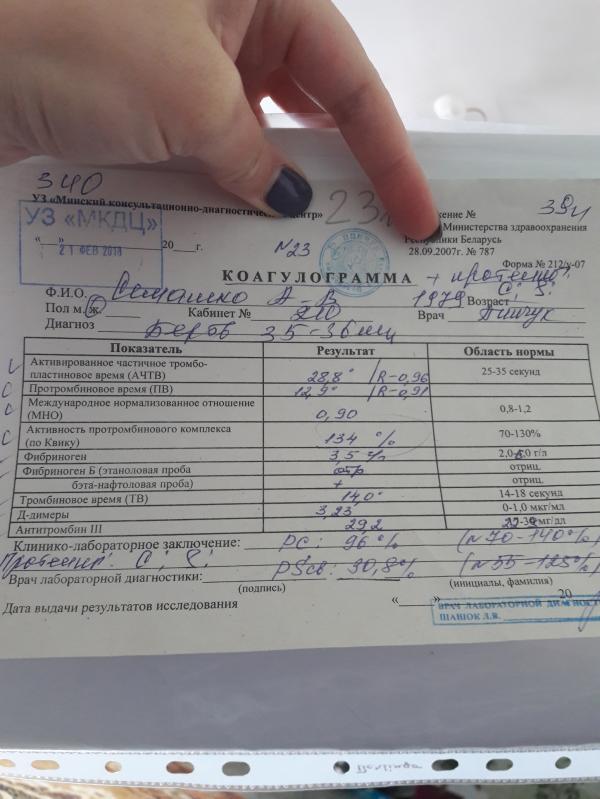 340
УЗ «Минский консультационно-диагностический центр»
УЗ «МКДЦ»
21 ФЕВ 2018
«__»________20___г.
N23
23
39ч
Министерства здравоохранения
Республики Беларусь
28.09.2007г. № 787
Форма № 212/у-07
КОАГУЛОГРАММА + протеины
C, S.
Ф.И.О. А. В. 1979 Возраст
Пол м. ж. Кабинет № 210 Врач
Диагноз Берем 35-36 нед
Показатель Результат Область нормы
Активированное частичное тромбо-
пластиновое время (АЧТВ) 28,8" /R-0,96 25-35 секунд
Протромбиновое время (ПВ) 12,9" /R-0,91
Международное нормализованное отношение
(МНО) 0,90 0,8-1,2
Активность протромбинового комплекса
(по Квику) 134 % 70-130%
Фибриноген 3,5 г/л г/л
Фибриноген Б (этаноловая проба отр отриц.
бэта-нафтоловая проба) + отриц.
Тромбиновое время (ТВ) 14,0" 14-18 секунд
Д-димеры 3,23 0-1,0 мкг/мл
Антитромбин III 29,2 мг/дл
Клинико-лабораторное заключение: PC: 96 % (N 70-140%)
C, S: PSсв: 30,8% (N 55-125%)
Врач лабораторной диагностики:
(подпись) (инициалы, фамилия)
Дата выдачи результатов исследования «____»________20
ВРАЧ ЛАБОРАТОРНОЙ ДИАГНОСТ
ШАНЮК Л.В.